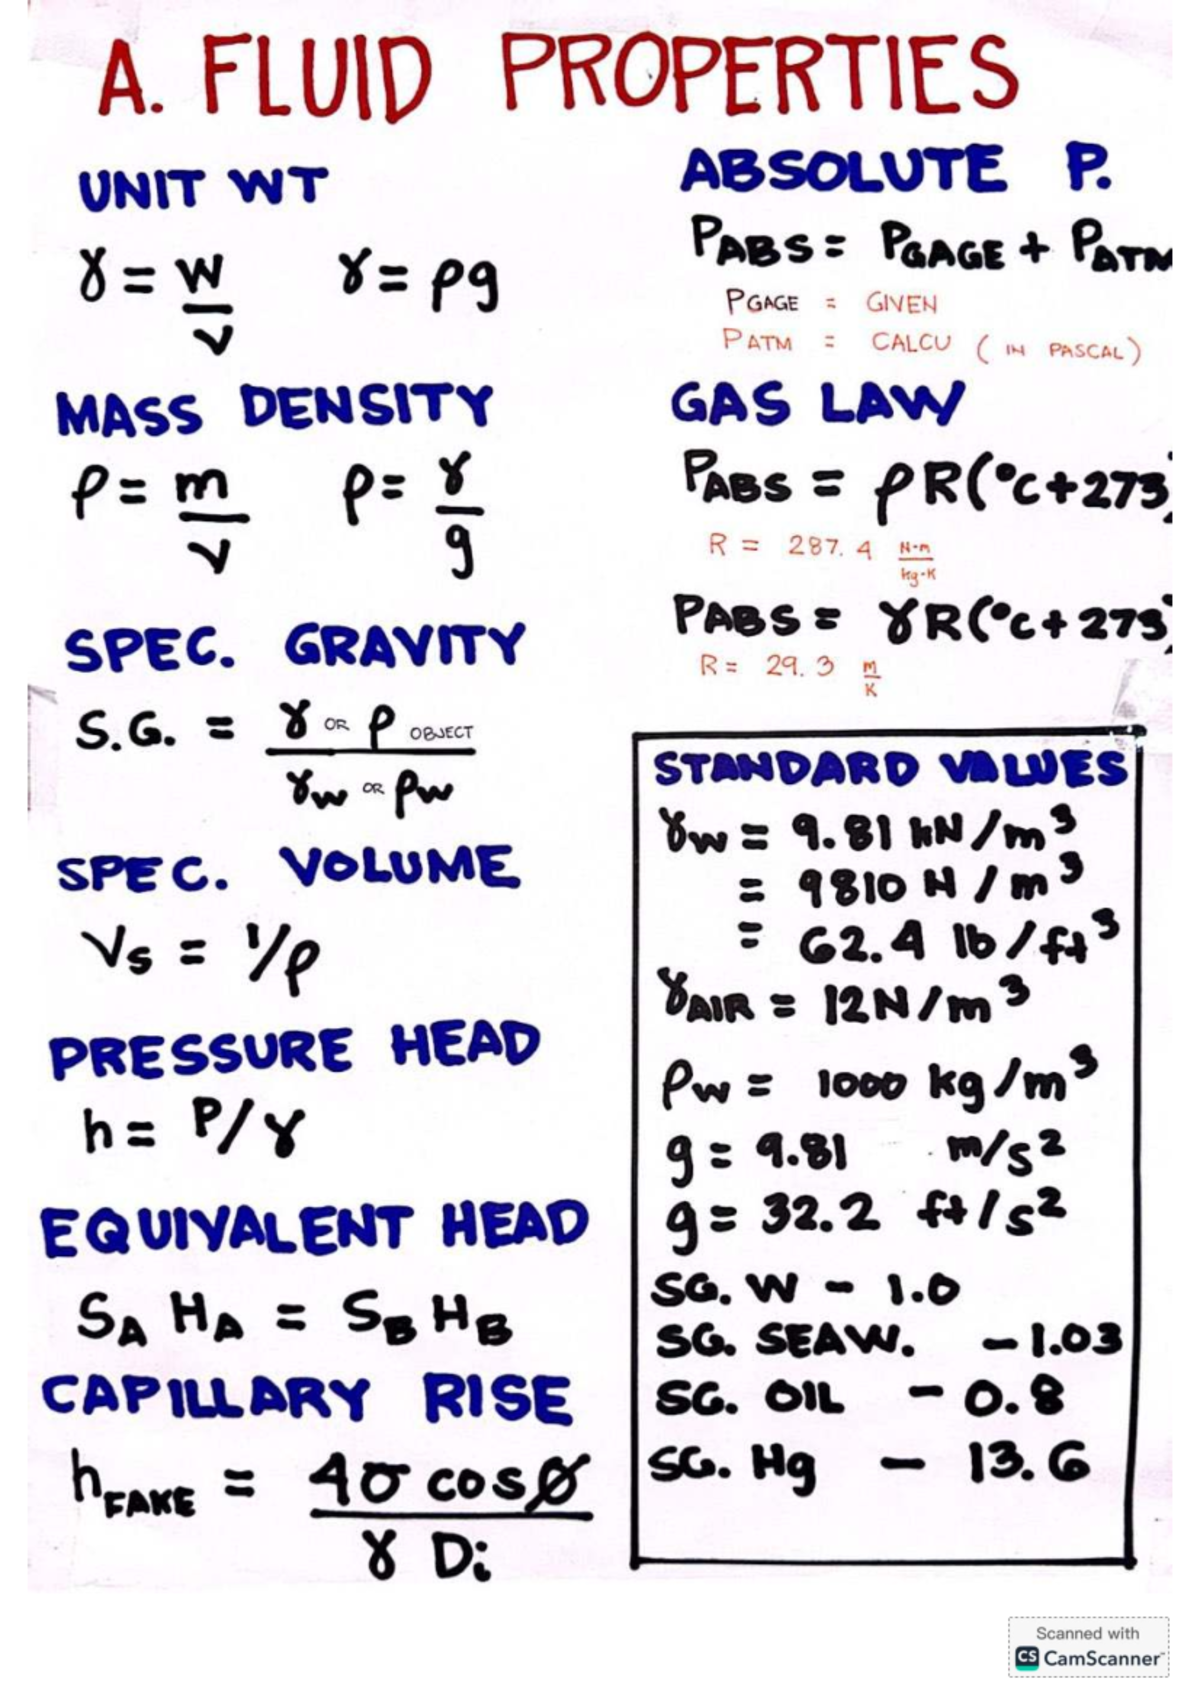 A. FLUID PROPERTIES
UNIT WT
γ = W/V γ = ρg
MASS DENSITY
ρ = m/V ρ = γ/g
SPEC. GRAVITY
S.G. = γ OR ρ OBJECT / γw OR ρw
SPEC. VOLUME
Vs = 1/ρ
PRESSURE HEAD
h = P/γ
EQUIVALENT HEAD
SA HA = SB HB
CAPILLARY RISE
hFAKE = 4σ cosø / γ Di
ABSOLUTE P.
PABS = PGAGE + PATM
PGAGE = GIVEN
PATM = CALCU (IN PASCAL)
GAS LAW
PABS = ρR(°C+273)
R = 287.4 N-m/kg-K
PABS = γR(°C+273)
R = 29.3 m/K
STANDARD VALUES
γw = 9.81 kN/m³
= 9810 N/m³
= 62.4 lb/ft³
γAIR = 12N/m³
ρw = 1000 kg/m³
g = 9.81 m/s²
g = 32.2 ft/s²
SG. W - 1.0
SG. SEAW. - 1.03
SG. OIL - 0.8
SG. Hg - 13.6
Scanned with
CS CamScanner